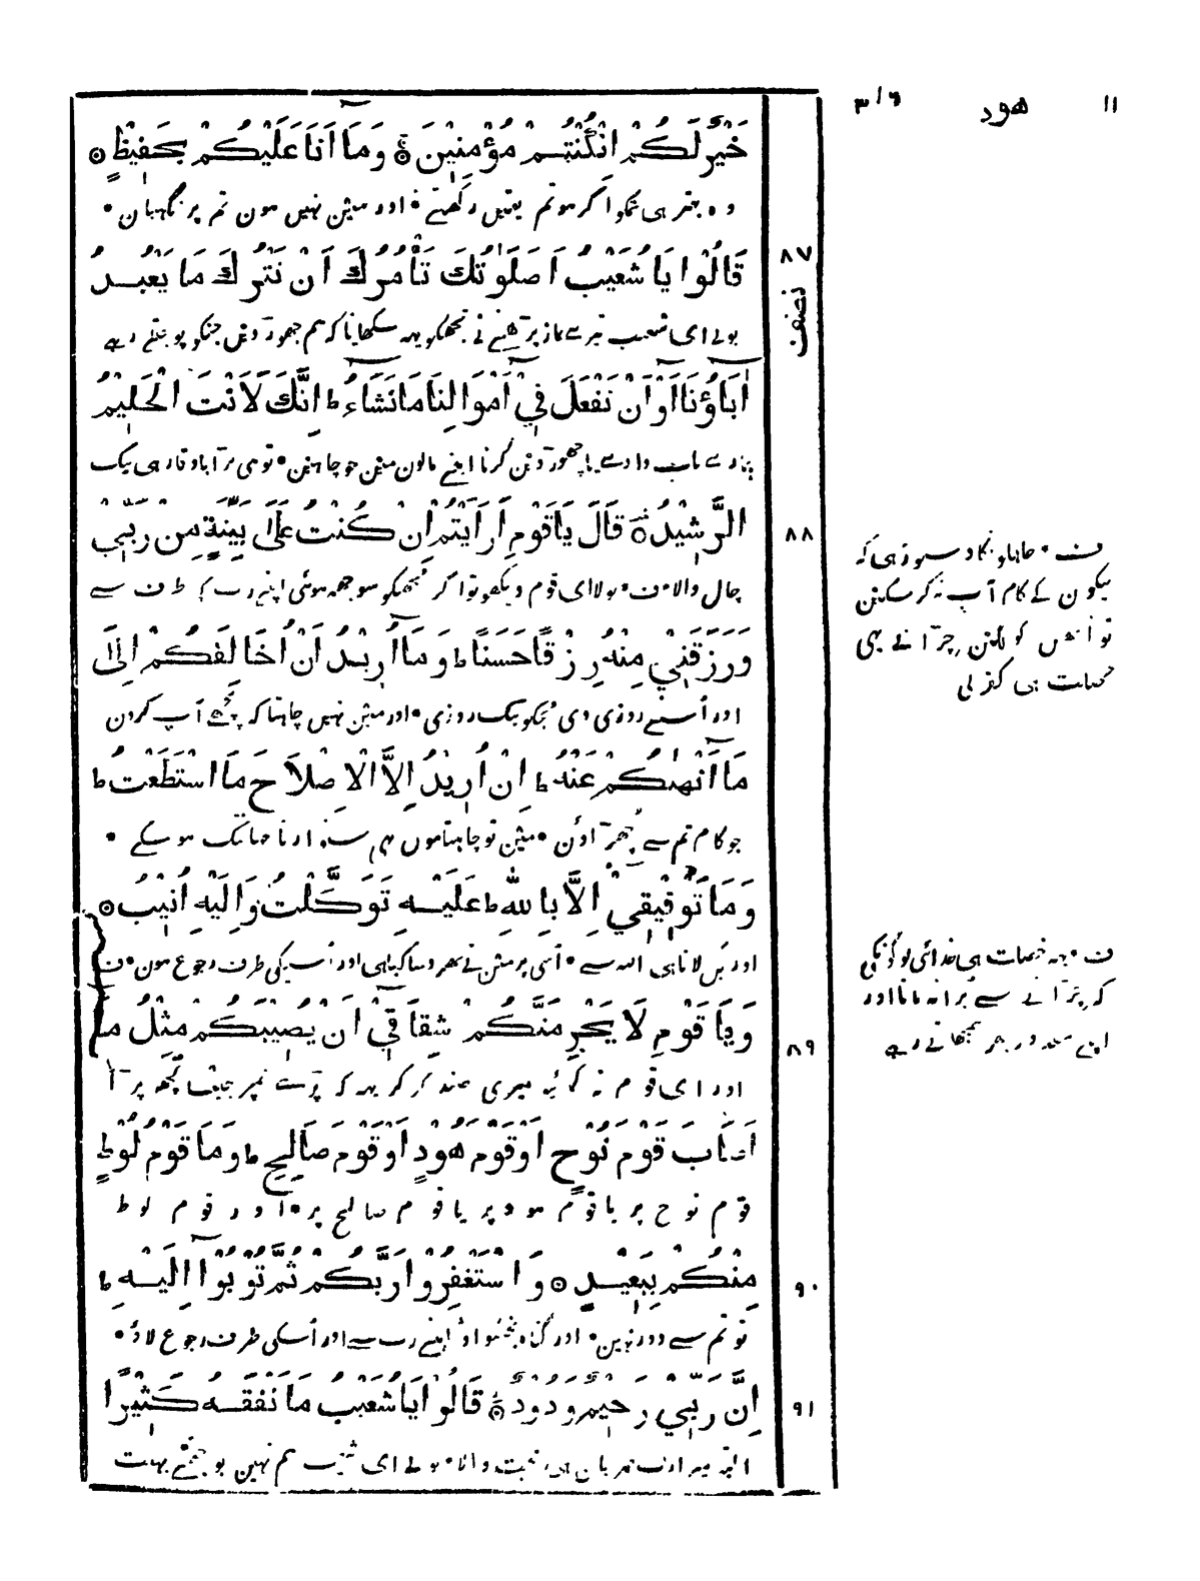 ۱۱ هود ۳/۶
خَيْرٌ لَكُمْ اِنْ كُنْتُمْ مُؤْمِنِيْنَ ۚ وَمَا اَنَا عَلَيْكُمْ بِحَفِيْظٍ ۝
وہ بہتر ہی تمکو اگر ہو تم یقین رکھتے • اور میں نہیں ہون تم پر نگہبان •
۸۷ نصف
قَالُوْا يَا شُعَيْبُ اَصَلٰوتُكَ تَأْمُرُكَ اَنْ نَتْرُكَ مَا يَعْبُدُ
بولے ای شعیب تیرے نماز پڑھنے نے تجھکو یہہ سکھایا کہ ہم چھوڑ دین جنکو پوجتے رہے
اٰبَاؤُنَا اَوْ اَنْ نَفْعَلَ فِيْ اَمْوَالِنَا مَا نَشَاءُ ؕ اِنَّكَ لَاَنْتَ الْحَلِيْمُ
ہمارے باپ دادے یا چھوڑ دین کرنا اپنے مالون مین جو چاہین • توہی بڑا باوقار ہی نیک
الرَّشِيْدُ ۝ قَالَ يَا قَوْمِ اَرَاَيْتُمْ اِنْ كُنْتُ عَلٰى بَيِّنَةٍ مِنْ رَبِّيْ
۸۸
چال والا • ف • بولا ای قوم دیکھو تو اگر مجھکو سوجھہ ہوئی اپنے رب کی طرف سے
وَرَزَقَنِيْ مِنْهُ رِزْقًا حَسَنًا ؕ وَمَا اُرِيْدُ اَنْ اُخَالِفَكُمْ اِلٰى
اور اُسنے روزی دی مجکو نیک روزی • اور مین نہیں چاہتا کہ پیچھے آپ کرون
مَا اَنْهٰىكُمْ عَنْهُ ؕ اِنْ اُرِيْدُ اِلَّا الْاِصْلَاحَ مَا اسْتَطَعْتُ ؕ
جو کام تم سے چھڑاؤن • مین تو چاہتا ہوں یہی سنوارنا جہانتک ہو سکے •
وَمَا تَوْفِيْقِيْ اِلَّا بِاللهِ ؕ عَلَيْهِ تَوَكَّلْتُ وَاِلَيْهِ اُنِيْبُ ۝
اور بن لانا ہی اللہ سے • اُسی پر مین نے بھروسا کیا ہی اور اُسیکی طرف رجوع ہون • ف
وَيَا قَوْمِ لَا يَجْرِمَنَّكُمْ شِقَاقِيْ اَنْ يُصِيْبَكُمْ مِثْلُ مَا
۸۹
اور ای قوم نہ کمائیو میری ضد کر کر یہہ کہ پڑے تمپر جیسا کچھہ پڑا
اَصَابَ قَوْمَ نُوْحٍ اَوْ قَوْمَ هُوْدٍ اَوْ قَوْمَ صَالِحٍ ؕ وَمَا قَوْمُ لُوْطٍ
قوم نوح پر یا قوم ہود پر یا قوم صالح پر • اور قوم لوط
مِنْكُمْ بِبَعِيْدٍ ۝ وَاسْتَغْفِرُوْا رَبَّكُمْ ثُمَّ تُوْبُوْا اِلَيْهِ ؕ
۹۰
تو تم سے دور نہین • اور گناہ بخشواؤ اپنے رب سے اور اُسکی طرف رجوع لاؤ •
اِنَّ رَبِّيْ رَحِيْمٌ وَدُوْدٌ ۝ قَالُوْا يَا شُعَيْبُ مَا نَفْقَهُ كَثِيْرًا
۹۱
البتہ میرا رب مہربان ہی محبت والا • بولے ای شعیب ہم نہین بوجھتے بہت
ف • جاہلونکا دستور ہی کہ
نیکون کے کام آپ نہ کر سکین
تو انہیں کو لگین چڑانے یہی
خصلت ہی کفر کی
ف • یہہ خصلت ہی خدائی لوگونکی
کہ چڑانے سے بُرا نہ مانا اور
اپنے مقدور بھر سمجھاتے رہے